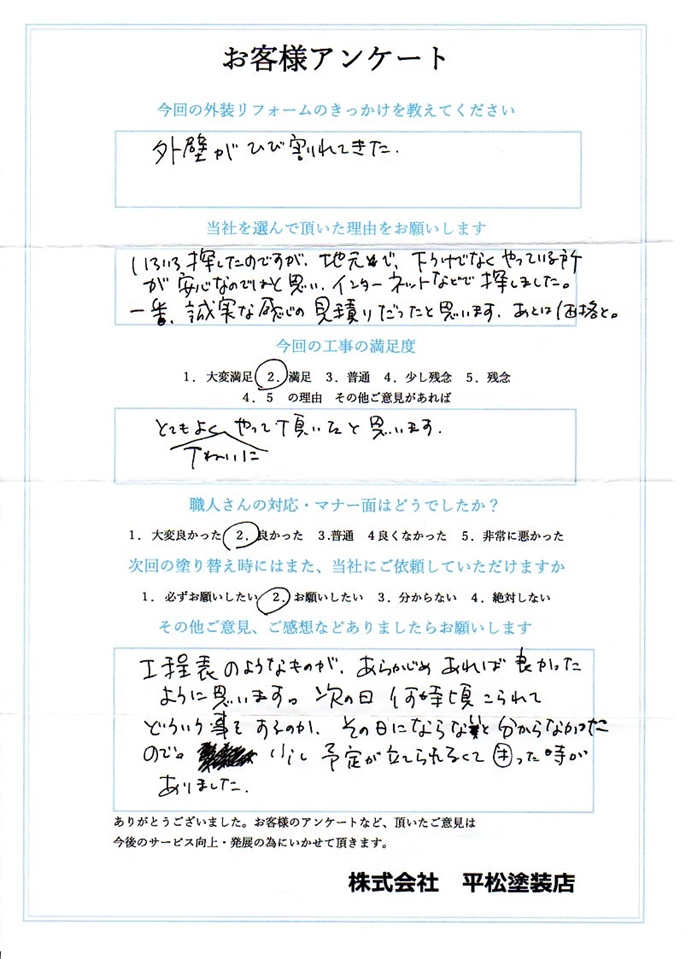 お客様アンケート
今回の外装リフォームのきっかけを教えてください
外壁がひび割れてきた.
当社を選んで頂いた理由をお願いします
いろいろ探したのですが、地元で、下うけでなくやっている所
が安心なのではと思い、インターネットなどで探しました。
一番、誠実な感じの見積りだったと思います、あとは価格と。
今回の工事の満足度
1. 大変満足 2. 満足 3. 普通 4. 少し残念 5. 残念
4. 5 の理由 その他ご意見があれば
とてもよくやって頂いたと思います.
ていねいに
職人さんの対応・マナー面はどうでしたか?
1. 大変良かった 2. 良かった 3.普通 4良くなかった 5. 非常に悪かった
次回の塗り替え時にはまた、当社にご依頼していただけますか
1. 必ずお願いしたい 2. お願いしたい 3. 分からない 4. 絶対しない
その他ご意見、ご感想などありましたらお願いします
工程表のようなものが、あらかじめあれば良かった
ように思います。次の日何時頃こられて
どういう事をするのか、その日にならないと分からなかった
ので。少し予定が立てられなくて困った時が
ありました.
ありがとうございました。お客様のアンケートなど、頂いたご意見は
今後のサービス向上・発展の為にいかせて頂きます。
株式会社 平松塗装店